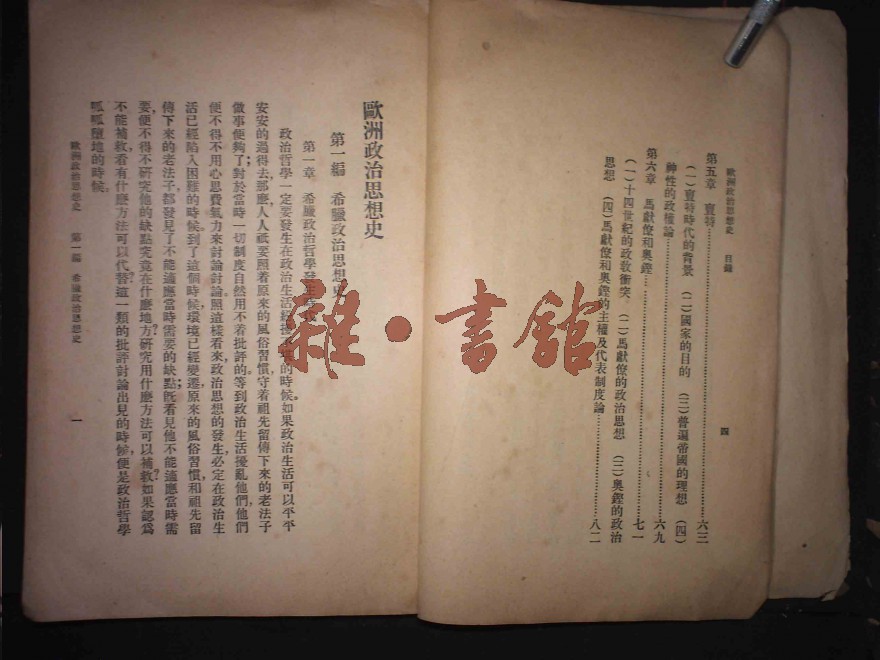 歐洲政治思想史　目錄
四
第五章　亶特……六三
（一）亶特時代的背景　（二）國家的目的　（三）普遍帝國的理想　（四）
神性的政權論……六九
第六章　馬獻僚和奧鏗……七一
（一）十四世紀的政教衝突　（二）馬獻僚的政治思想　（三）奧鏗的政治
思想　（四）馬獻僚和奧鏗的主權及代表制度論……八二
歐洲政治思想史
第一編　希臘政治思想史
第一章　希臘政治哲學發生
政治哲學一定要發生在政治生活經擾的時候。如果政治生活可以平平
安安的過得去，那麼，人人祇要照着原來的風俗習慣，守着祖先留傳下來的老法子
做事便夠了；對於當時一切制度自然用不着批評的。等到政治生活擾亂他們，他們
便不得不用心思費氣力來討論討論。照這樣看來，政治思想的發生，必定在政治生
活已經陷入困難的時候。到了這個時候，環境已經變遷，原來的風俗習慣，和祖先留
傳下來的老法子，都發見了不能適應當時需要的缺點；旣看見他不能適應當時需
要，便不得不研究他的缺點究竟在什麼地方？研究用什麼方法可以補救？如果認爲
不能補救，看有什麼方法可以代替？這一類的批評討論出見的時候，便是政治哲學
呱呱墮地的時候。
歐洲政治思想史　第一編　希臘政治思想史
一
雜·書館